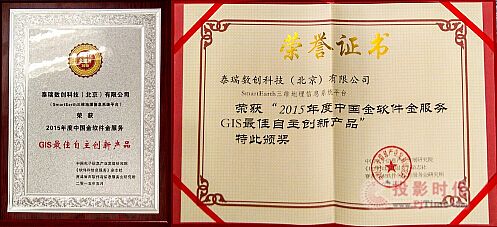 泰瑞数创科技（北京）有限公司
（SmartEarth三维地理信息系统平台）
荣 获
2015年度中国金软件金服务
GIS最佳自主创新产品
中国电子信息产业发展研究院
《软件和信息服务》杂志社
二零一五年五月
荣誉证书
泰瑞数创科技（北京）有限公司
SmartEarth三维地理信息系统平台
荣获“2015年度中国金软件金服务
GIS最佳自主创新产品”
特此颁奖
投影时代